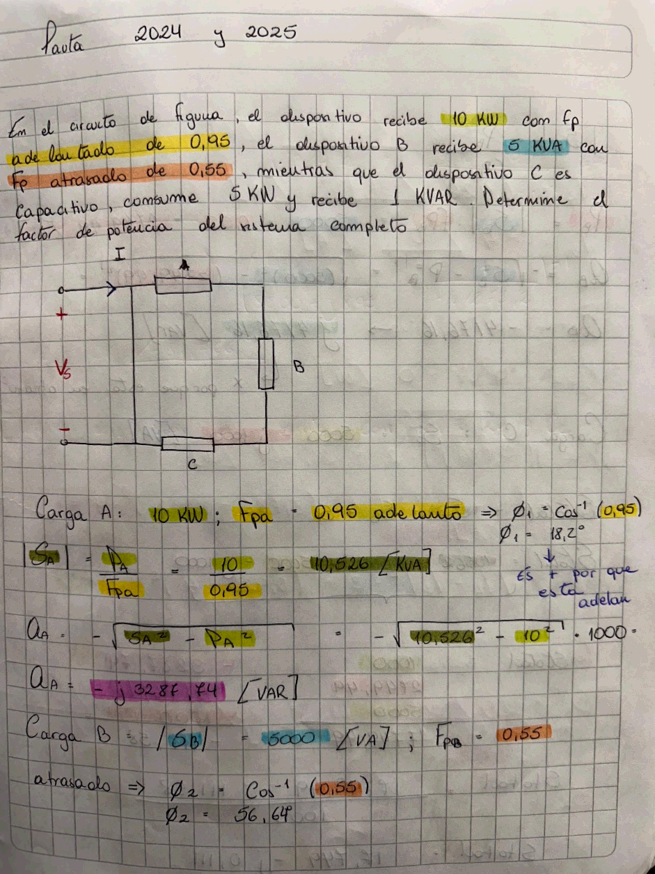 Pauta 2024 y 2025
En el circuito de figura, el dispositivo recibe 10 KW con fp
adelantado de 0,95, el dispositivo B recibe 5 KVA con
Fp atrasado de 0,55, mientras que el dispositivo C es
Capacitivo, consume 5 KW y recibe 1 KVAR. Determine el
factor de potencia del sistema completo
I
A
+
Vs
B
-
C
Carga A: 10 KW; Fpa = 0,95 adelanto ⇒ φ₁ = Cos⁻¹ (0,95)
φ₁ = 18,2°
↓
és + por que
esta
adelan
|SA| = PA/Fpa = 10/0,95 = 10,526 [KVA]
QA = -√(SA² - PA²) = -√(10,526² - 10²) · 1000 =
QA = -j 3287,74 [VAR]
Carga B = |SB| = 5000 [VA]; FpB = 0,55
atrasado ⇒ φ2 = Cos⁻¹ (0,55)
φ2 = 56,64